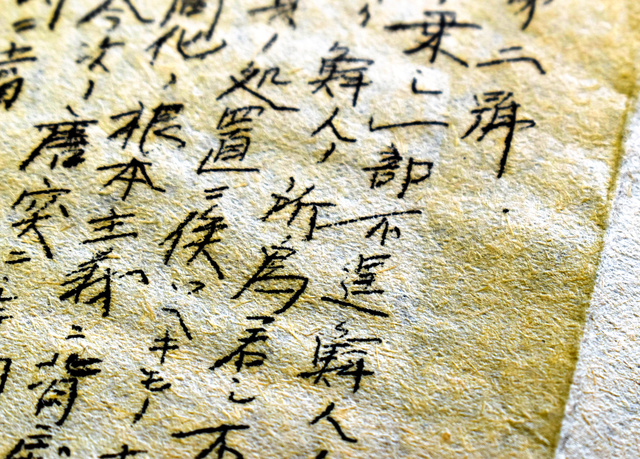 二號
乗シ一部不逞鮮人
鮮人ノ所為若シ不
ノ処置ニ俟ツヘキモノ
同化ノ根本主義ニ背
今次ノ唐突ニ